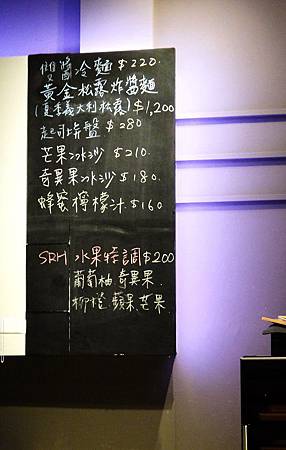 雙醬冷麵 $220.
黃金松露炸醬麵
(夏季義大利松露) $1,200
起司拼盤 $280
芒果冰沙 $210.
奇異果冰沙 $180.
蜂蜜檸檬汁 $160
SRH 水果特調 $200
葡萄柚 奇異果.
柳橙.蘋果.芒果